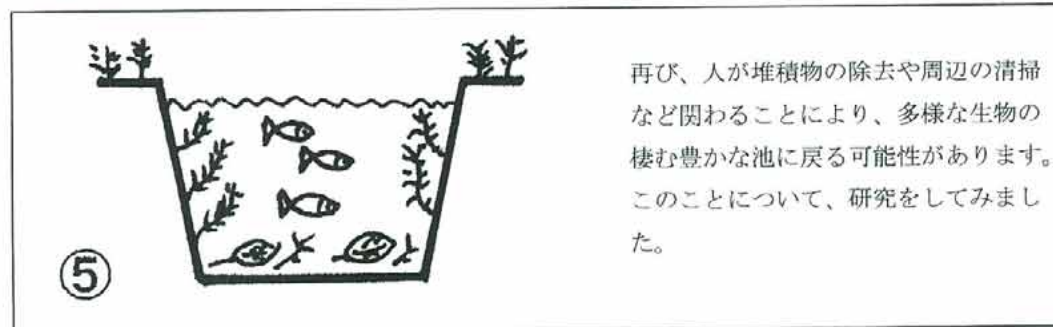 再び、人が堆積物の除去や周辺の清掃
など関わることにより、多様な生物の
棲む豊かな池に戻る可能性があります。
このことについて、研究をしてみまし
た。
⑤